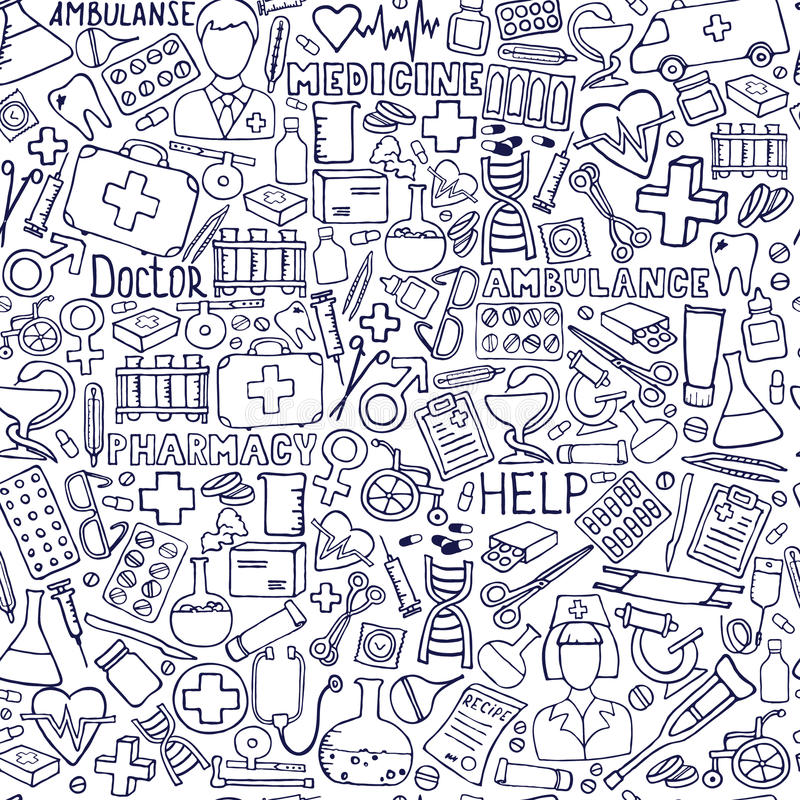 AMBULANSE
MEDICINE
DOCTOR
AMBULANCE
PHARMACY
HELP
RECIPE